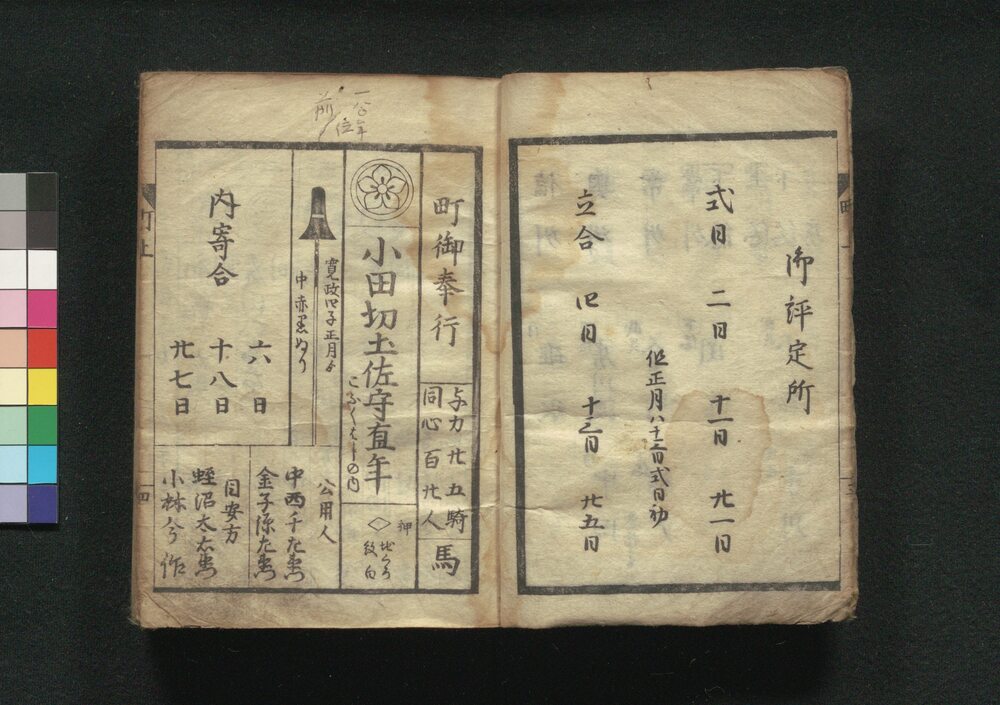 御評定所
式日 二日 十一日 廿一日
但正月八十二日式日初
立合 四日 十三日 廿五日
町御奉行
与力 廿五騎
同心 百廿人
馬
小田切土佐守直年
ごふくばしの内
紋白
寛政四子正月ゟ
中赤黒ぬり
内寄合
六日
十八日
廿七日
公用人
中西千左衛門
金子源左衛門
目安方
蛭沼太右衛門
小林今作
四